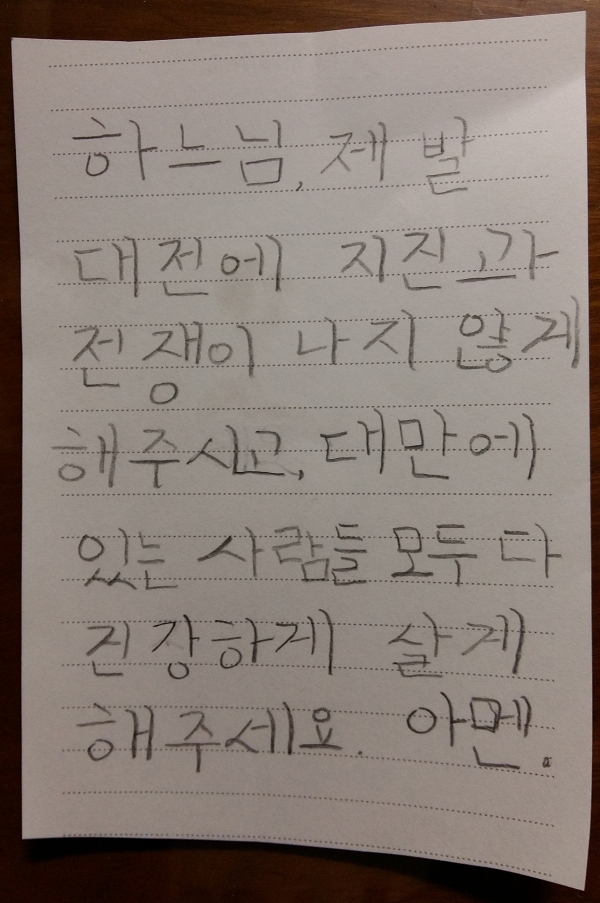 하느님, 제발
대전에 지진과
전쟁이 나지 않게
해주시고, 대만에
있는 사람들 모두 다
건강하게 살게
해주세요. 아멘.